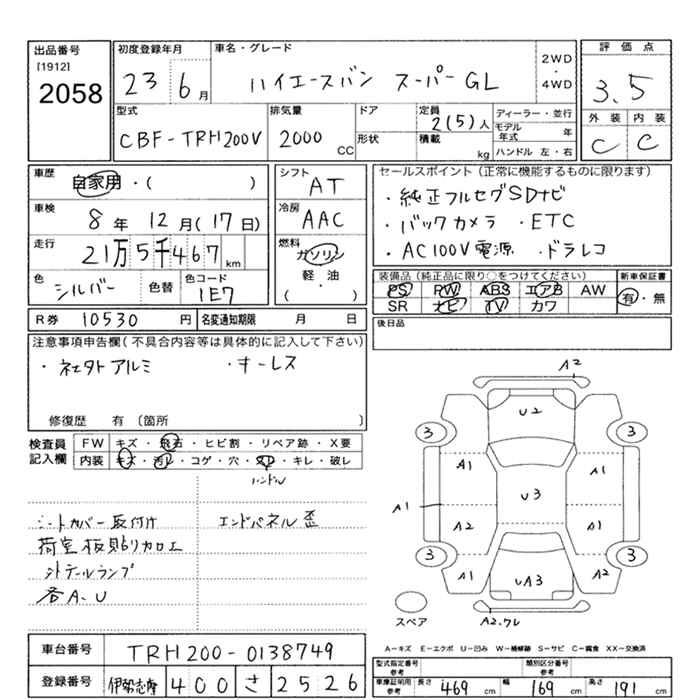 出品番号
[1912]
2058
初度登録年月
23 6月
車名・グレード
ハイエースバン スーパーGL
2WD
・
4WD
評価点
3.5
外装 内装
C C
型式
CBF-TRH200V
排気量
2000 CC
ドア
形状
定員
2(5)人
積載
kg
ディーラー・並行
モデル年式 年
ハンドル 左・右
車歴
自家用・( )
車検
8年 12月(17日)
走行
21万5千467km
色
シルバー
色替
色コード
1E7
シフト
AT
冷房
AAC
燃料
ガソリン
軽・油
( )
セールスポイント(正常に機能するものに限ります)
・純正フルセグSDナビ
・バックカメラ ・ETC
・AC100V電源 ・ドラレコ
装備品(純正品に限り○をつけてください)
PS PW ABS エアB AW
SR ナビ TV カワ
新車保証書
有・無
R券 10530円
名変通知期限 月 日
後日品
注意事項申告欄(不具合内容等は具体的に記入して下さい)
・社外アルミ ・キーレス
修復歴 有 〔箇所 〕
検査員記入欄
FW キズ・飛石・ヒビ割・リペア跡・X要
内装 キズ・汚レ・コゲ・穴・スレ・キレ・破レ
ハンドル
シートカバー取付け
荷室板貼り加工
エンドパネル歪
各A-U
A2
U2
3 3
A1 A1
A1 U3
A2 A1
3 3
A1 UA3 A2
スペア
A2.ワレ
A-キズ E-エクボ U-凹み W-補修跡 S-サビ C-腐食 XX-交換済
車台番号 TRH200-0138749
登録番号 伊勢志摩 400 さ 2526
型式指定番号 参考
類別区分番号 参考
車庫証明用 参考
長さ 469cm 幅 169cm 高さ 191cm